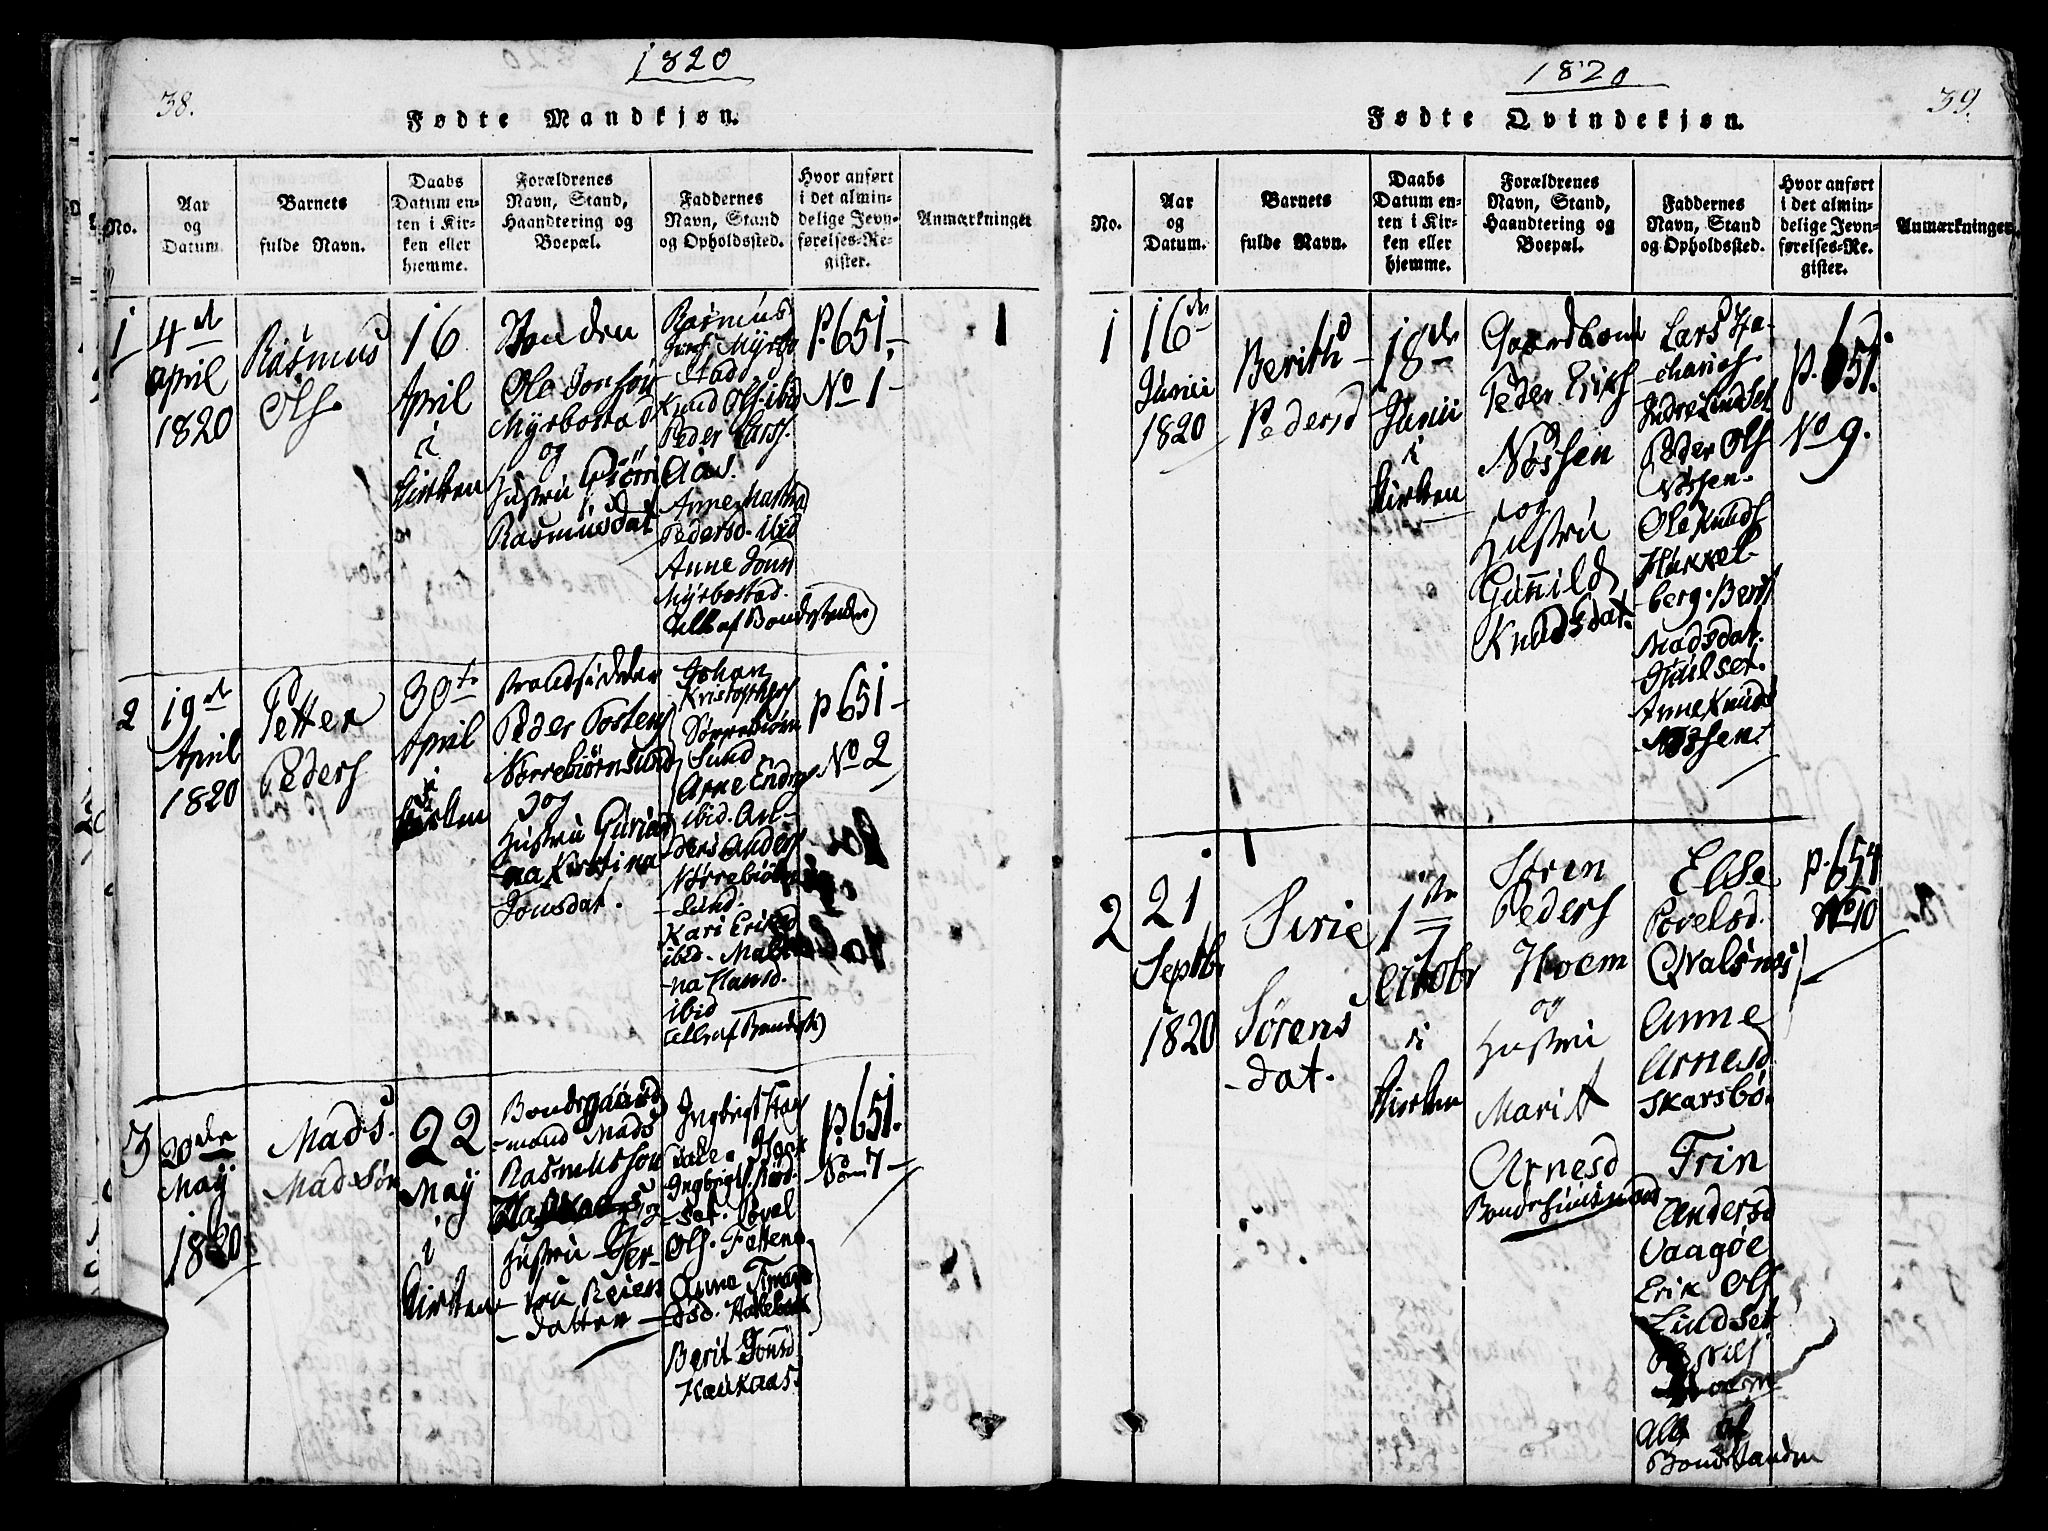 1820
38.
Fødte Mandkjøn.
No.
Aar
og
Datum.
Barnets
fulde Navn.
Daabs
Datum en-
ten i Kir-
ken eller
hjemme.
Forældrenes
Navn, Stand,
Haandtering og
Boepæl.
Faddernes
Navn, Stand
og Opholdssted.
Hvor anført
i det almin-
delige Jevn-
førelses-Re-
gister.
Anmærkninger
1
4de
April
1820
Rasmus
Ols
16
April
i
Kirken
Bonden
Ole Jonsøn
Myrbostad
og
Hustru
Rasmusdat
Rasmus
Myrbo
stad
Knud Ols. ibid
Peder Larss.
Aas.
Anne Martha
Pedersd. ibid
Anne Jonsd
Myrbostad.
alle af Bondestanden
P. 651,
No 1
2
19de
April
1820
Petter
Peders
30te
April
i
Kirken
Strandsidder
Peder Tostens
Nørrebiørnsund
og
Hustru
na Kirstina
Jonsdat.
Johan
Kristophers
Nørrebiørn
sund
Arne Endres
ibid. An-
ders Anders
Nørrebiørn
sund.
Kari Eriksd
ibid. Male
na Hansd.
ibid
alle af Bondest)
P 651
No 2
3
20de
May
1820
Mads
Madsøn
22
May
i
Kirken
Bondegaard
mand Mads
Rasmussøn
og
Hustru Ger-
tru Reiers
datter
Ingbrigt
Isak
Ingbrigts. Rød
set. Povel
Ols. Fattena
Anne
dsd.
Berit Jonsd
Haukaas
P. 651.
No 7
1820
39.
Fødte Qvindekjøn.
No.
Aar
og
Datum.
Barnets
fulde Navn.
Daabs
Datum en-
ten i Kir-
ken eller
hjemme.
Forældrenes
Navn, Stand,
Haandtering og
Boepæl.
Faddernes
Navn, Stand
og Opholdssted.
Hvor anført
i det almin-
delige Jevn-
førelses-Re-
gister.
Anmærkninger
1
16de
Junii
1820
Berith
Pedersd
18de
Junii
i
Kirken
Gaardbond
Peder Eriks
Nøssen
og
Hustru
Gunnild
Knudsdat.
Lars Za-
charies
Indre Lindset
Peder Ols
Nøssen.
Ole Knuds
Hakkel
berg. Berit
Madsdat.
Judilset.
Anne Knuds
Nøssen.
P. 651.
No 9.
2
21
Septbr
1820
Sirie
Sørens
dat.
1ste
Octobr
i
Kirken
Sören
Peders
Hoem
og
Hustru
Marit
Arnesd
Bondehuusmand
Else
Povelsd.
Qvalsnes
Anne
Arnesd
Skarsbø.
Trin
Andersd
Vaagøe
Erik Ols
Lindset
Nils
Alle af
Bondestanden
P. 654
No 10